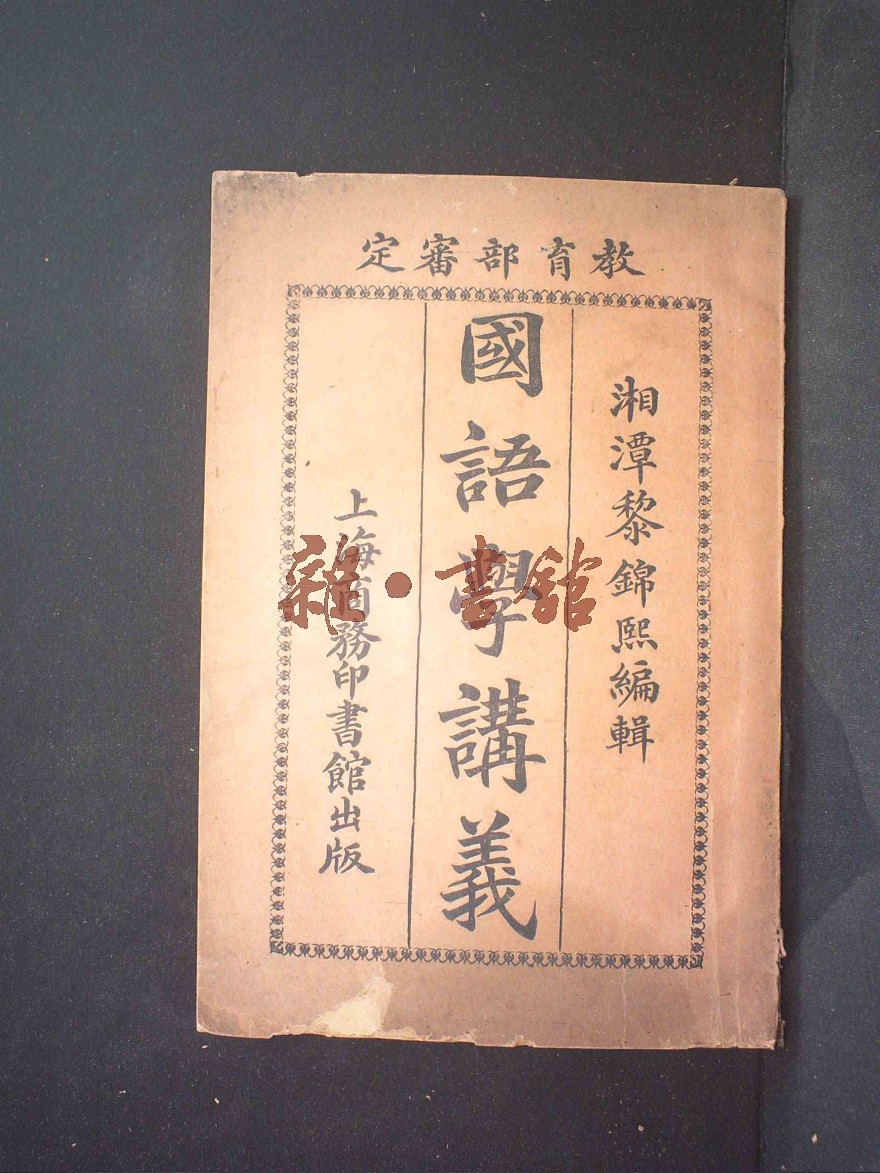 教育部審定
湘潭黎錦熙編輯
國語學講義
上海商務印書館出版
雜·書館